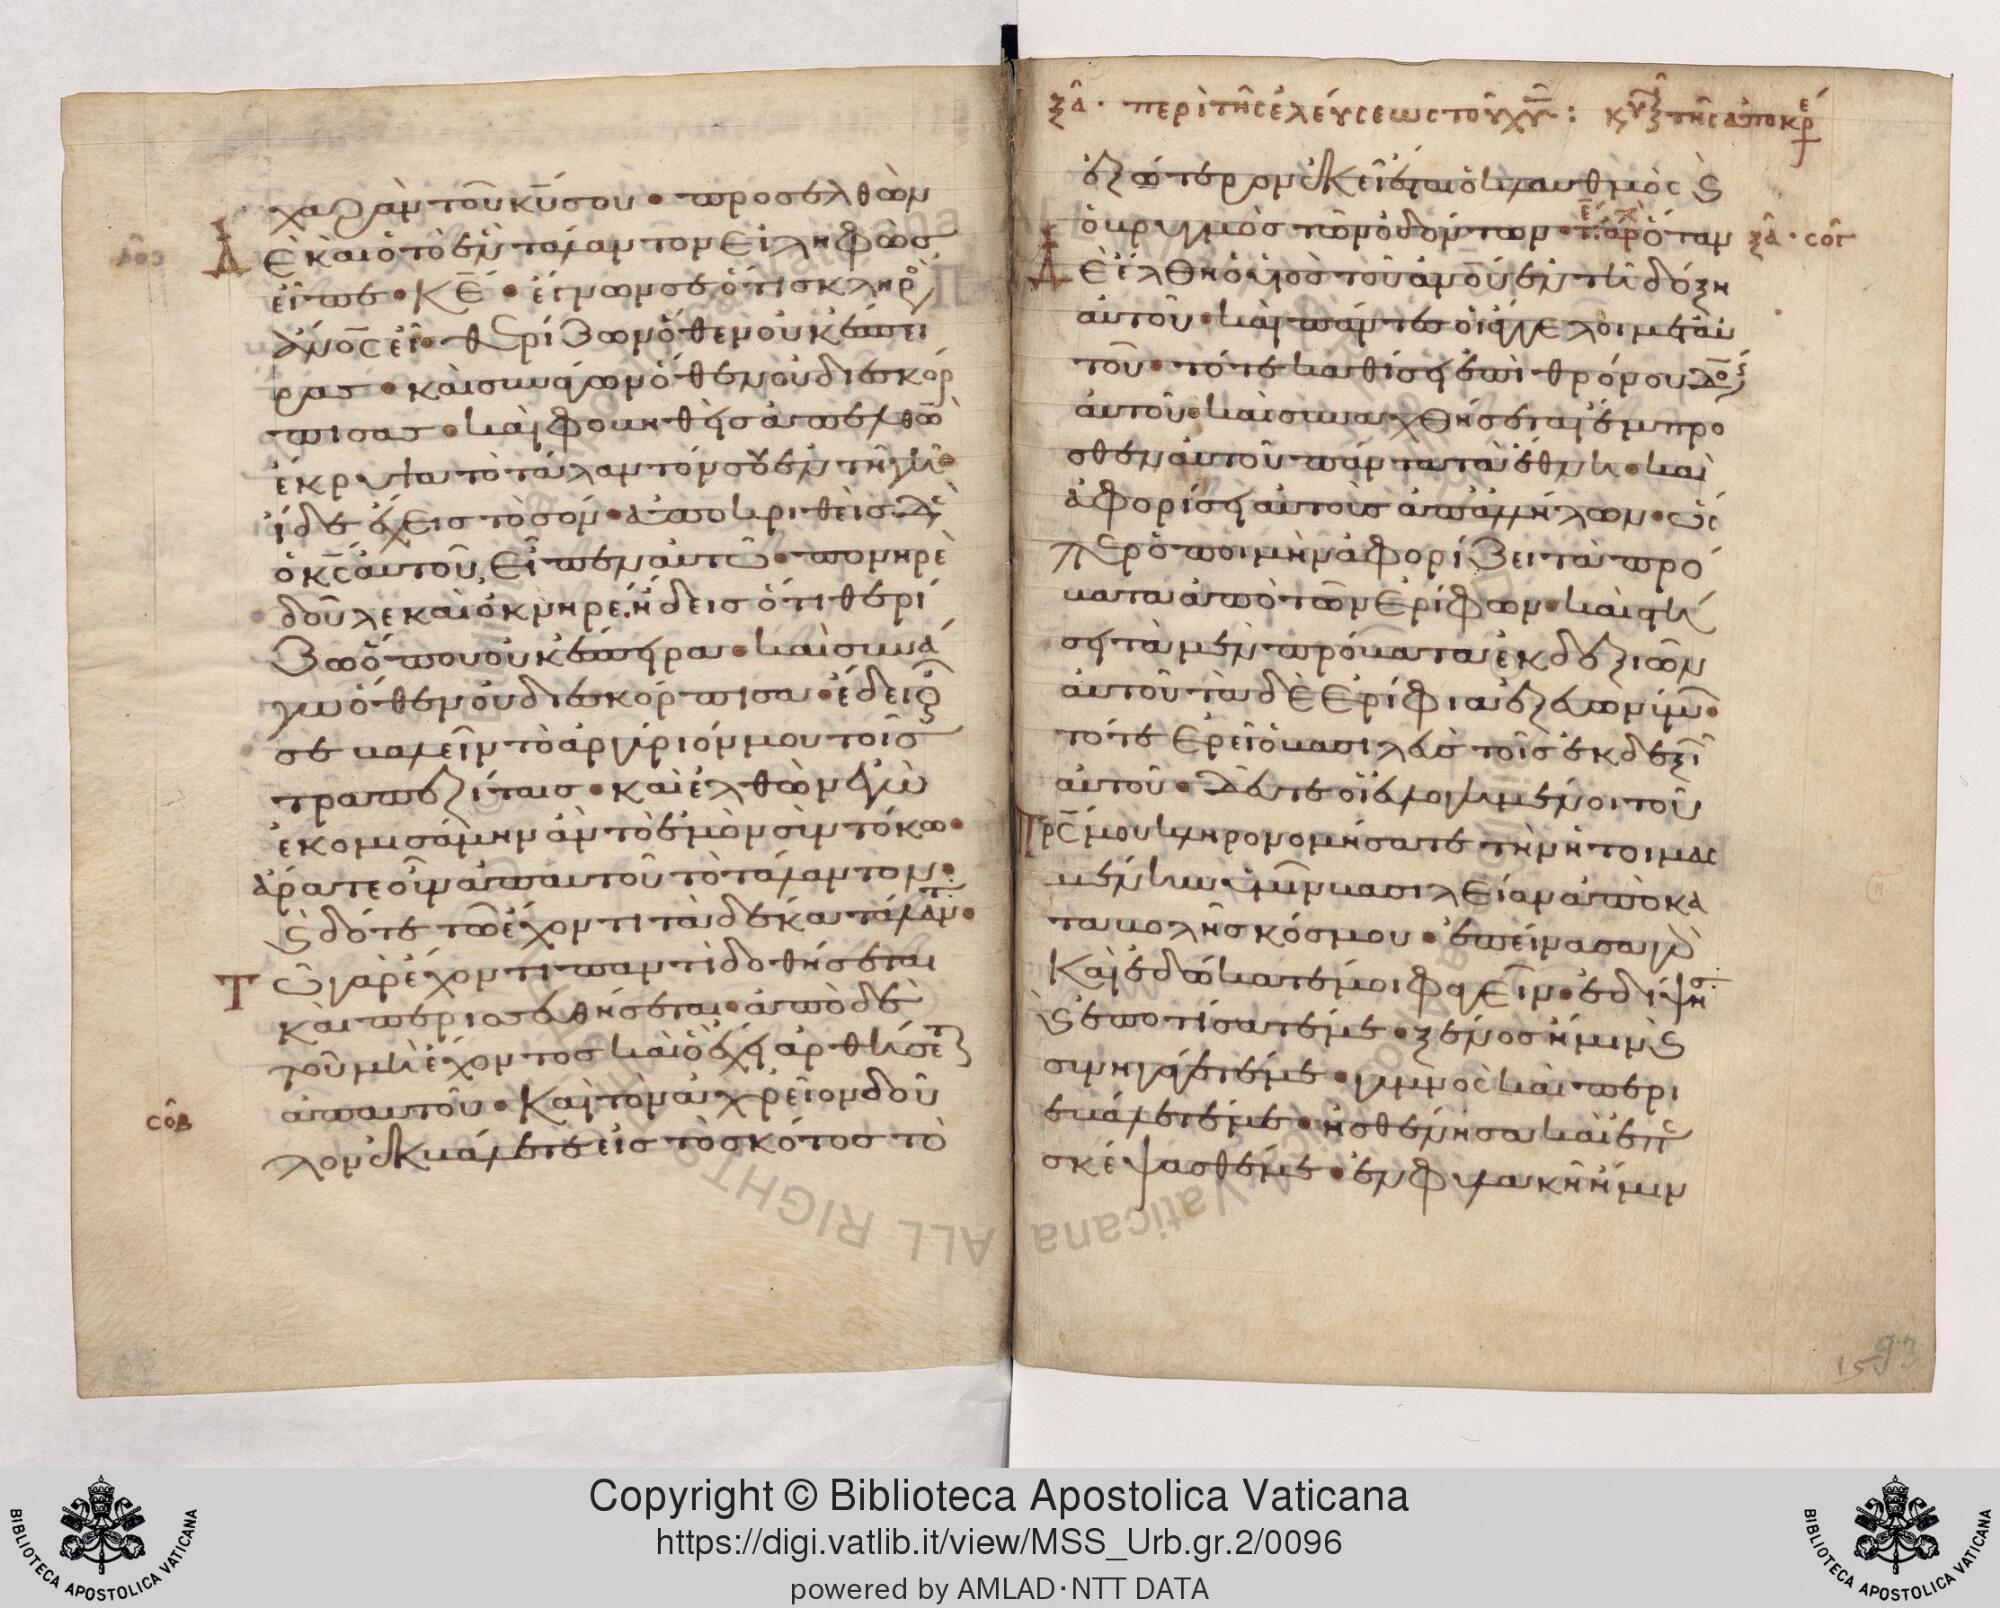 χαρὰν τοῦ κ̅υ̅ σου • προσελθὼν
Δὲ καὶ ὁ τὸ ἓν τάλαντον εἰληφὼσ
εἶπε • κ̅ε̅ • ἔγνων σε ὅτι σκληρὸ
ἄ̅ν̅ο̅ς̅ εἶ • θερίζων ὅθεν οὐκ ἔσπει
ρας • καὶ συνάγων ὅθεν οὐ διεσκόρ
πισας • καὶ φοβηθεὶς ἀπελθὼ
ἔκρυψα τὸ τάλαντόν σου ἐν τῆ γῆ •
ἴδε ἔχεις τὸ σόν • ἀποκριθεὶς δὲ
ὁ κ̅ς̅ αὐτοῦ, εἶπεν αὐτῶ • πονηρὲ
δοῦλε καὶ ὀκνηρέ. ἤδεις ὅτι θερί
ζω ὅπου οὐκ ἔσπειρα • καὶ συνά
γω ὅθεν οὐ διεσκόρπισα • ἔδει οὖ
σε βαλεῖν τὸ ἀργύριόν μου τοῖς
τραπεζίταις • καὶ ἐλθὼν ἐγὼ
ἐκομισάμην ἂν τὸ ἐμὸν σὺν τόκω •
ἄρατε οὖν ἀπ αυτοῦ τὸ τάλαντον •
ϗ δότε τῶ ἔχοντι τὰ δέκα τάλαν •
Τῶ γὰρ ἔχοντι παντὶ δοθήσεται
καὶ περισσευθήσεται • ἀπὸ δὲ
τοῦ μὴ ἔχοντος καὶ ὃ ἔχει ἀρθήσετ
σοβ
ἀπ αυτοῦ • Καὶ τὸν ἀχρεῖον δοῦ
λον ἐκβάλετε εἰς τὸ σκότος τὸ
ξα · περὶ τῆς ἐλεύσεως τοῦ χ̅υ̅ : κυ τῆς ἀποκρέ
ἐξώτερον ἐκεῖ ἔσται ὁ κλαυθμὸς ϗ
ὁ βρυγμὸς τῶν ὀδόντων • ὅταν ξα · σογ
Δὲ ἔλθη ὁ υἱὸς τοῦ ἀν̅ο̅υ̅ ἐν τῆ δόξη
αὐτοῦ • καὶ πάντες οἱ ἄγγελοι μετ αὐ
τοῦ • τότε καθίσει ἐπὶ θρόνου δοξ
αὐτοῦ • καὶ συναχθήσεται ἔμπρο
σθεν αὐτοῦ πάντα τὰ ἔθνη • καὶ
ἀφορίσει αὐτοὺς ἀπ ἀλλήλων • ὥς
περ ὁ ποιμὴν ἀφορίζει τὰ πρό
βατα ἀπὸ τῶν ἐρίφων • καὶ στή
σει τὰ μὲν πρόβατα ἐκ δεξιῶν
αὐτοῦ τὰ δὲ ἐρίφια ἐξ εὐωνύμ •
τότε ἐρεῖ ὁ βασιλεὺς τοῖς ἐκ δεξι
αὐτοῦ • Δεῦτε οἱ εὐλογημένοι τοῦ
Π̅ρ̅ς̅ μου κληρονομήσατε τὴν ἡτοιμασ
μένην ὑμῖν βασιλείαν ἀπὸ κα
ταβολῆς κόσμου • ἐπείνασα γὰρ
Καὶ ἐδώκατέ μοι φαγεῖν • ἐδίψησ
ϗ ἐποτίσατέ με • ξένος ἤμην ϗ
συνηγάγετέ με • γυμνὸς καὶ περι
εβάλετέ με • ἠσθένησα καὶ ἐπε
σκέψασθέ με • ἐν φυλακῆ ἤμην
93
15
Copyright © Biblioteca Apostolica Vaticana
https://digi.vatlib.it/view/MSS_Urb.gr.2/0096
powered by AMLAD·NTT DATA
BIBLIOTECA APOSTOLICA VATICANA
BIBLIOTECA APOSTOLICA VATICANA